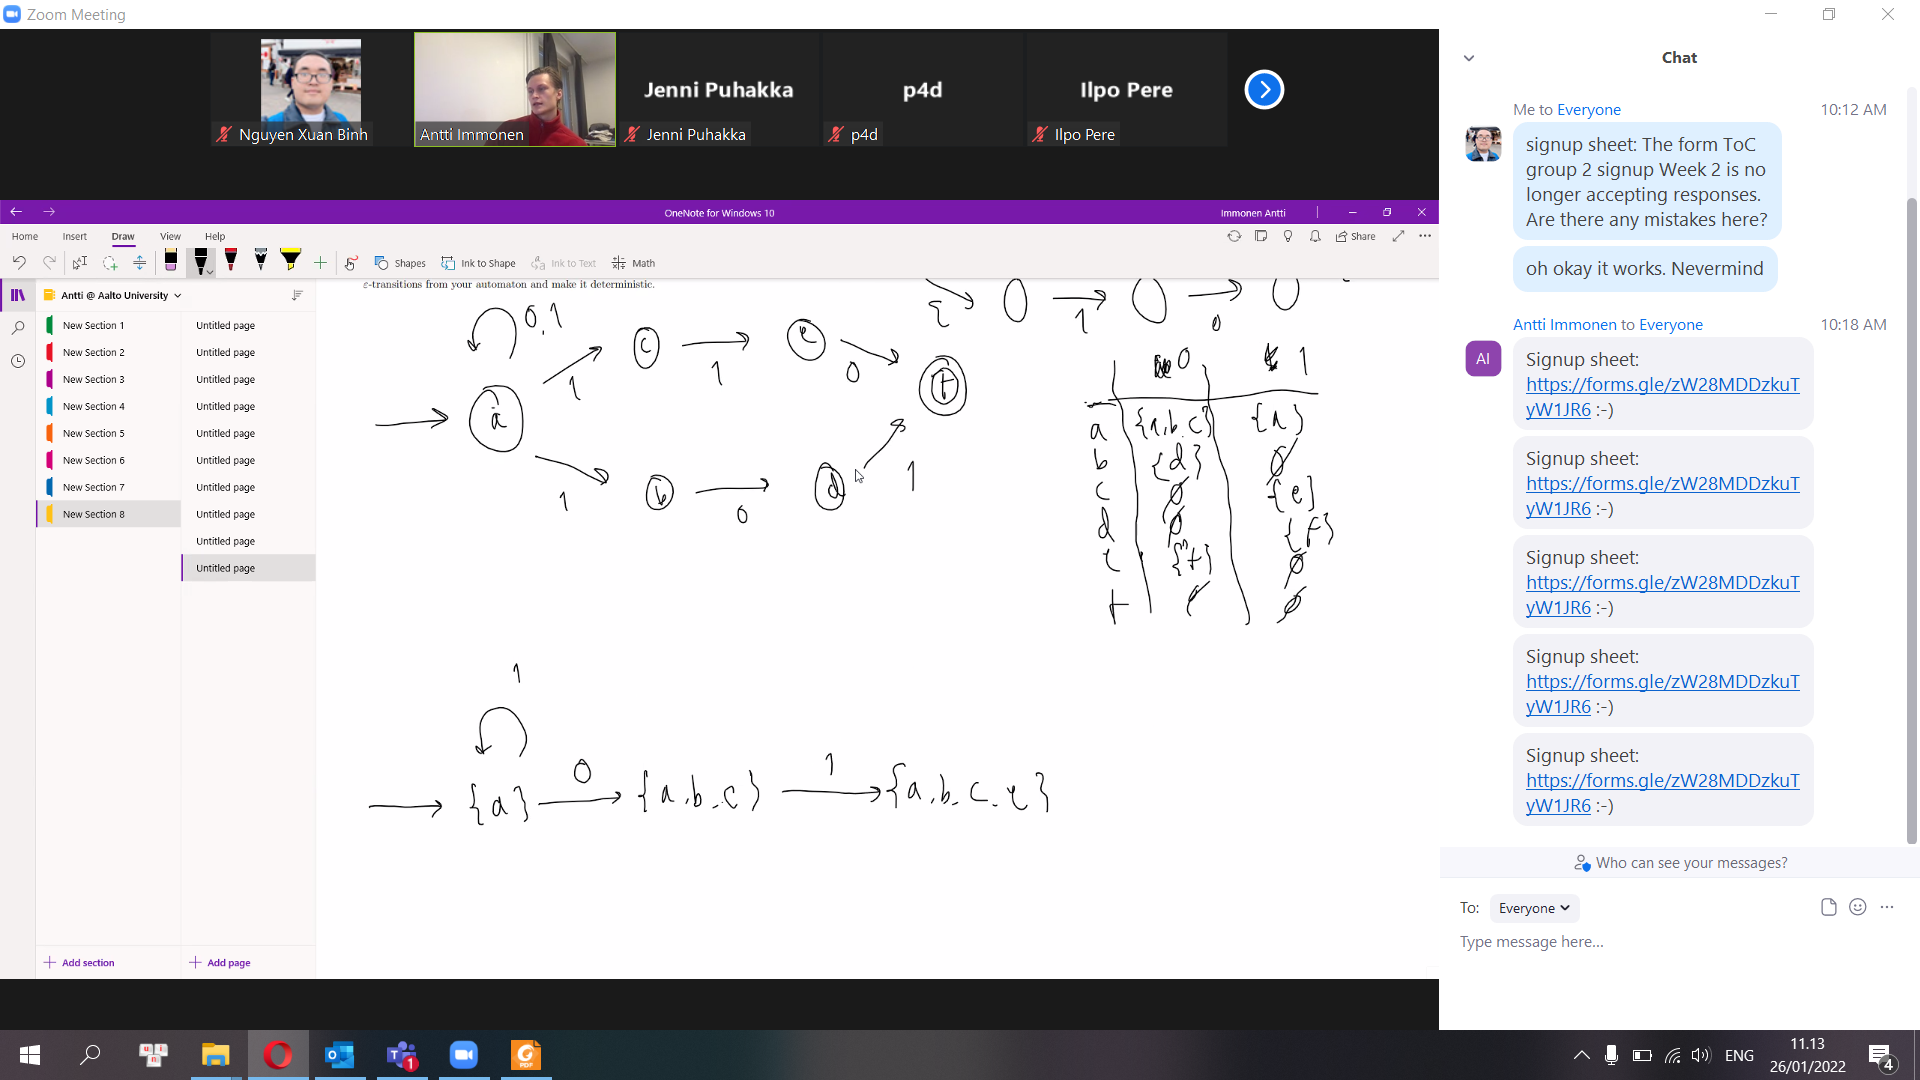 Zoom Meeting
Jenni Puhakka
p4d
Ilpo Pere
Nguyen Xuan Binh
Antti Immonen
Jenni Puhakka
p4d
Ilpo Pere
OneNote for Windows 10
Immonen Antti
Home Insert Draw View Help
Share
Shapes Ink to Shape Ink to Text Math
Antti @ Aalto University
New Section 1
New Section 2
New Section 3
New Section 4
New Section 5
New Section 6
New Section 7
New Section 8
Untitled page
Untitled page
Untitled page
Untitled page
Untitled page
Untitled page
Untitled page
Untitled page
Untitled page
Untitled page
Add section
Add page
ε-transitions from your automaton and make it deterministic.
ε 1 0
0,1
a 1 c 1 e 0 f
1 b 0 d 1
0 1
a {a,b,c} {a}
b {d} ∅
c ∅ {e}
d ∅ {f}
e {f} ∅
f ∅ ∅
1
{a} 0 {a,b,c} 1 {a,b,c,e}
Chat
Me to Everyone 10:12 AM
signup sheet: The form ToC
group 2 signup Week 2 is no
longer accepting responses.
Are there any mistakes here?
oh okay it works. Nevermind
Antti Immonen to Everyone 10:18 AM
AI
Signup sheet:
https://forms.gle/zW28MDDzkuT
yW1JR6 :-)
Signup sheet:
https://forms.gle/zW28MDDzkuT
yW1JR6 :-)
Signup sheet:
https://forms.gle/zW28MDDzkuT
yW1JR6 :-)
Signup sheet:
https://forms.gle/zW28MDDzkuT
yW1JR6 :-)
Signup sheet:
https://forms.gle/zW28MDDzkuT
yW1JR6 :-)
Who can see your messages?
To: Everyone
Type message here...
1
PDF
ENG
11.13
26/01/2022
4